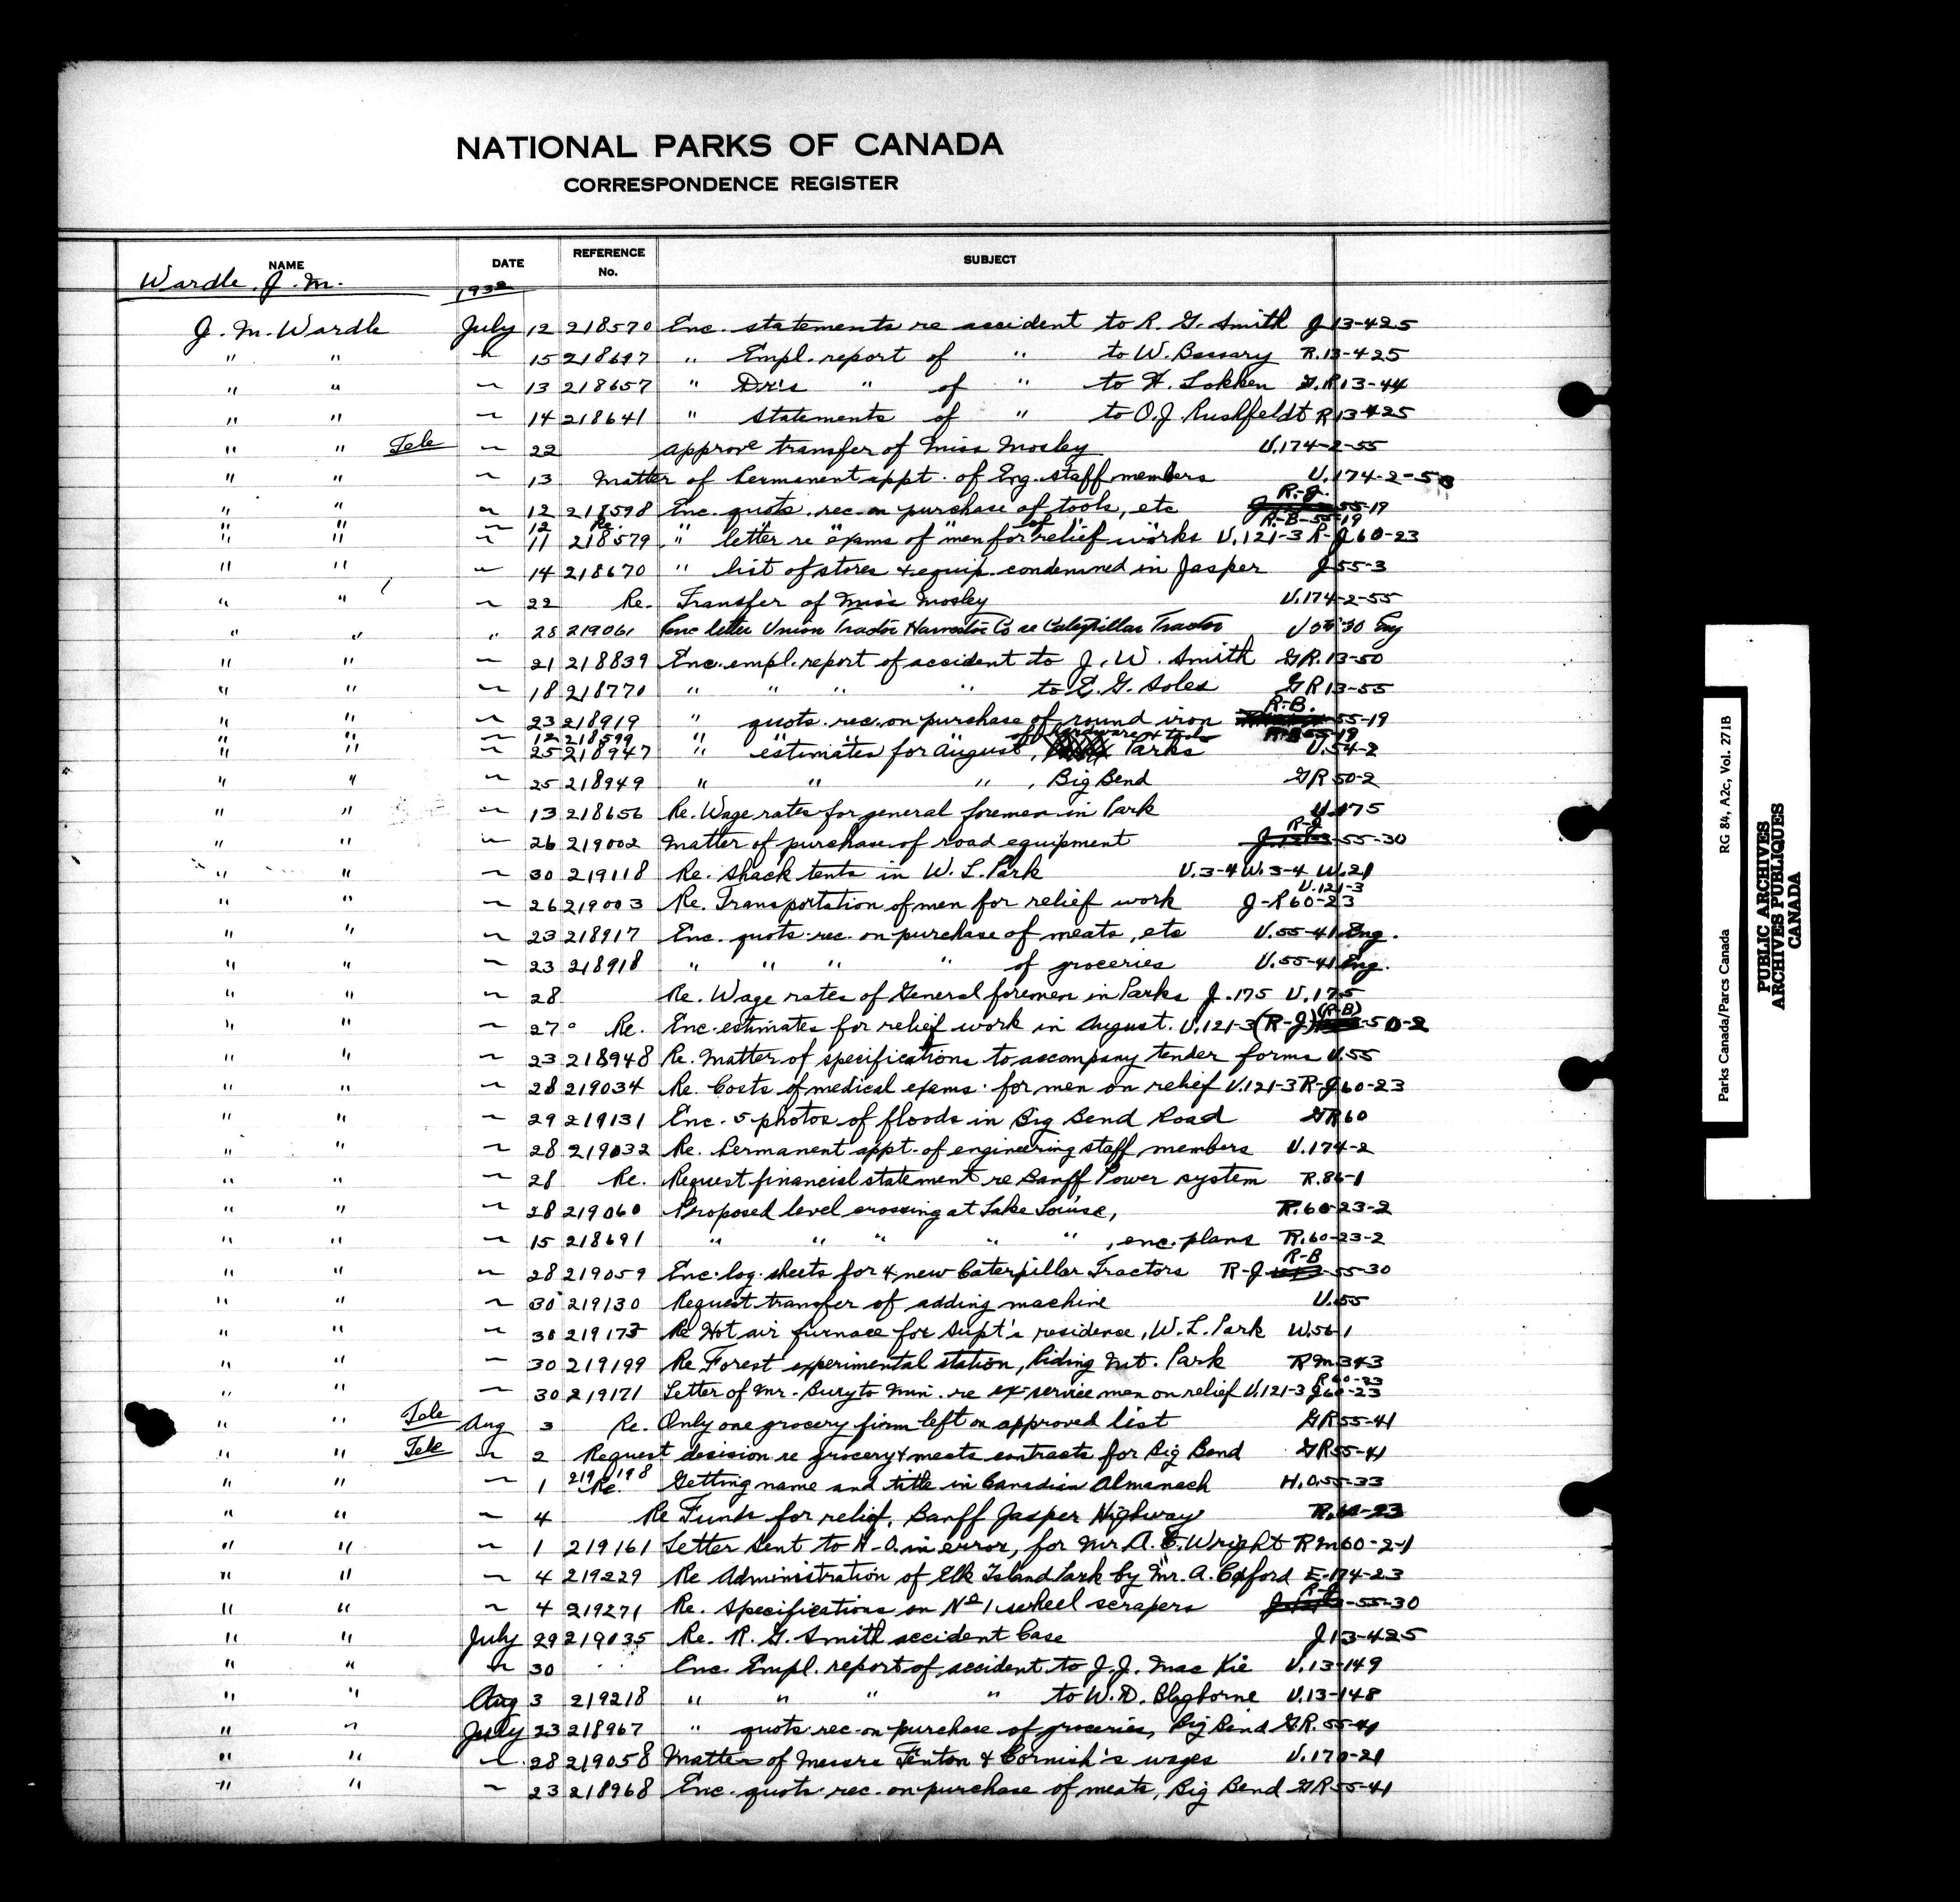 NATIONAL PARKS OF CANADA
CORRESPONDENCE REGISTER
NAME DATE REFERENCE No. SUBJECT
Wardle, J. M. 1932
J. M. Wardle July 12 218570 Enc. statements re accident to R. G. Smith J 13-425
" " ~ 15 218697 " Empl. report of " to W. Bassary R.13-425
" " ~ 13 218657 " Dr's " of " to H. Lokken G.R 13-44
" " ~ 14 218641 " statements of " to O.J. Rushfeldt R 13-425
" " Tele ~ 22 approve transfer of Miss Mosley U.174-2-55
" " ~ 13 Matter of Permanent appt. of Eng. staff members U.174-2-50
" " ~ 12 218598 Enc. quots. rec. on purchase of tools, etc R-J. 55-19
" " ~ 12 Re. " " " " of " R-B-55-19
" " ~ 11 218579 " letter re exams of men for relief works U.121-3 R-J 60-23
" " ~ 14 218670 " list of stores & equip. condemned in Jasper J 55-3
" " ~ 22 Re. Transfer of Miss Mosley U.174-2-55
" " " 28 219061 Enc letter Union Tractor Harvester Co re Caterpillar Tractor U 55-30 Eng
" " ~ 21 218839 Enc. empl. report of accident to J. W. Smith GR.13-50
" " ~ 18 218770 " " " " to E. G. Soles GR 13-55
" " ~ 23 218919 " quots. rec. on purchase of round iron R-B. 55-19
" " ~ 12 218599 " " " of hardware & tools R-B 55-19
" " ~ 25 218947 " estimates for August, Parks U.54-2
" " ~ 25 218949 " " " , Big Bend GR 50-2
" " ~ 13 218656 Re. Wage rates for general foremen in Park U.175
" " ~ 26 219002 Matter of purchase of road equipment R-J 55-30
" " ~ 30 219118 Re. shack tents in W. L. Park U.3-4 W.3-4 W.21
" " ~ 26 219003 Re. Transportation of men for relief work J-R 60-23 U.121-3
" " ~ 23 218917 Enc. quots. rec. on purchase of meats, etc U.55-41 Eng.
" " ~ 23 218918 " " " " of groceries U.55-41 Eng.
" " ~ 28 Re. Wage rates of General foremen in Parks J.175 U.175
" " ~ 27 Re. Enc. estimates for relief work in August. U.121-3 (R-J) (R-B) 50-2
" " ~ 23 218948 Re. Matter of specifications to accompany tender forms U.55
" " ~ 28 219034 Re. Costs of medical exams. for men on relief U.121-3 R-J 60-23
" " ~ 29 219131 Enc. 5 photos of floods in Big Bend Road GR 60
" " ~ 28 219032 Re. Permanent appt. of engineering staff members U.174-2
" " ~ 28 Re. Request financial statement re Banff Power system R.86-1
" " ~ 28 219060 Proposed level crossing at Lake Louise, R.60-23-2
" " ~ 15 218691 " " " " " , enc. plans R.60-23-2
" " ~ 28 219059 Enc. log. sheets for 4 new Caterpillar Tractors R-J R-B 55-30
" " ~ 30 219130 Request transfer of adding machine U.55
" " ~ 30 219173 Re Hot air furnace for Supt's residence, W. L. Park W.56-1
" " ~ 30 219199 Re Forest experimental station, Riding Mt. Park R M 343
" " ~ 30 219171 Letter of Mr. Bury to Min. re ex-service men on relief U.121-3 J 60-23 R 60-23
" " Tele Aug 3 Re. Only one grocery firm left on approved list GR 55-41
" " Tele ~ 2 Request decision re grocery & meats contracts for Big Bend GR 55-41
" " ~ 1 219198 Re. Getting name and title in Canadian Almanach H.O.55-33
" " ~ 4 Re Funds for relief, Banff Jasper Highway R.60-23
" " ~ 1 219161 Letter sent to H-O. in error, for Mr A. E. Wright R M 60-2-1
" " ~ 4 219229 Re Administration of Elk Island Park by Mr. A. Coxford E-174-23
" " ~ 4 219271 Re. Specifications on No 1 wheel scrapers R-J 55-30
" " July 29 219035 Re. R. G. Smith accident Case J 13-425
" " ~ 30 Enc. Empl. report of accident to J.J. Mac Kie U.13-149
" " Aug 3 219218 " " " " to W.D. Blagborne U.13-148
" " July 23 218967 " quots. rec. on purchase of groceries, Big Bend G.R. 55-41
" " ~ 28 219058 Matter of Messrs Fenton & Cornish's wages U.170-21
" " ~ 23 218968 Enc. quots. rec. on purchase of meats, Big Bend GR 55-41
Parks Canada/Parcs Canada RG 84, A2c, Vol. 271B
PUBLIC ARCHIVES
ARCHIVES PUBLIQUES
CANADA